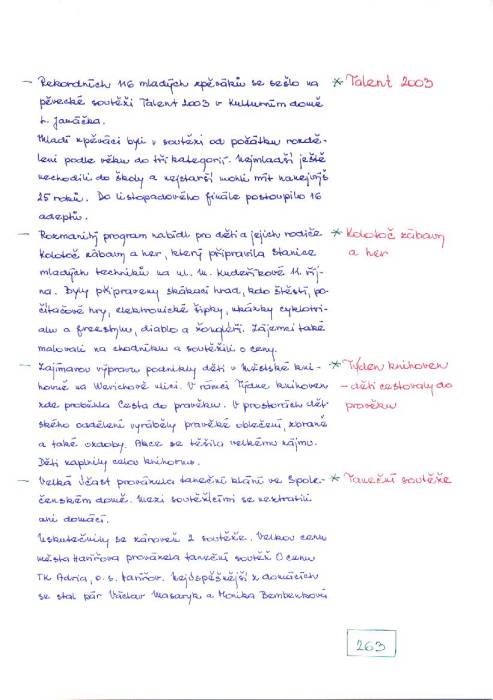 – Rekordních 116 mladých zpěváků se sešlo na
pěvecké soutěži Talent 2003 v Kulturním domě
L. Janáčka.
Mladí zpěváci byli v soutěži od počátku rozdě-
leni podle věku do tří kategorií. Nejmladší ještě
nechodili do školy a nejstarší mohli mít nanejvýš
25 roků. Do listopadového finále postoupilo 16
adeptů.
* Talent 2003
– Rozmanitý program nabídl pro děti a jejich rodiče
Kolotoč zábavy a her, který připravila Stanice
mladých techniků na ul. M. Kudeříkové 11. říj-
na. Byly připraveny skákací hrad, kdo štěstí, po-
čítačové hry, elektronické šipky, ukázky cyklotri-
alu a freestylu, diablo a žongléři. Zájemci také
malovali na chodníku a soutěžili o ceny.
* Kolotoč zábavy
a her
– Zajímavou výpravu podnikly děti v Městské kni-
hovně na Werichově ulici. V rámci Týdne knihoven
zde proběhla Cesta do pravěku. V prostorách dět-
ského oddělení vyráběly pravěké oblečení, zbraně
a také ozdoby. Akce se těšila velkému zájmu.
Děti zaplnily celou knihovnu.
* Týden knihoven
– děti cestovaly do
pravěku
– Velká účast provázela taneční klání ve Spole-
čenském domě. Mezi soutěžícími se neztratili
ani domácí.
Uskutečnily se zároveň 2 soutěže. Velkou cenu
města Havířova provázela taneční soutěž O cenu
TK Adria, o. s. Havířov. Nejúspěšnější z domácích
se stal pár Václav Masaryk a Monika Bembenková
* Taneční soutěže
263